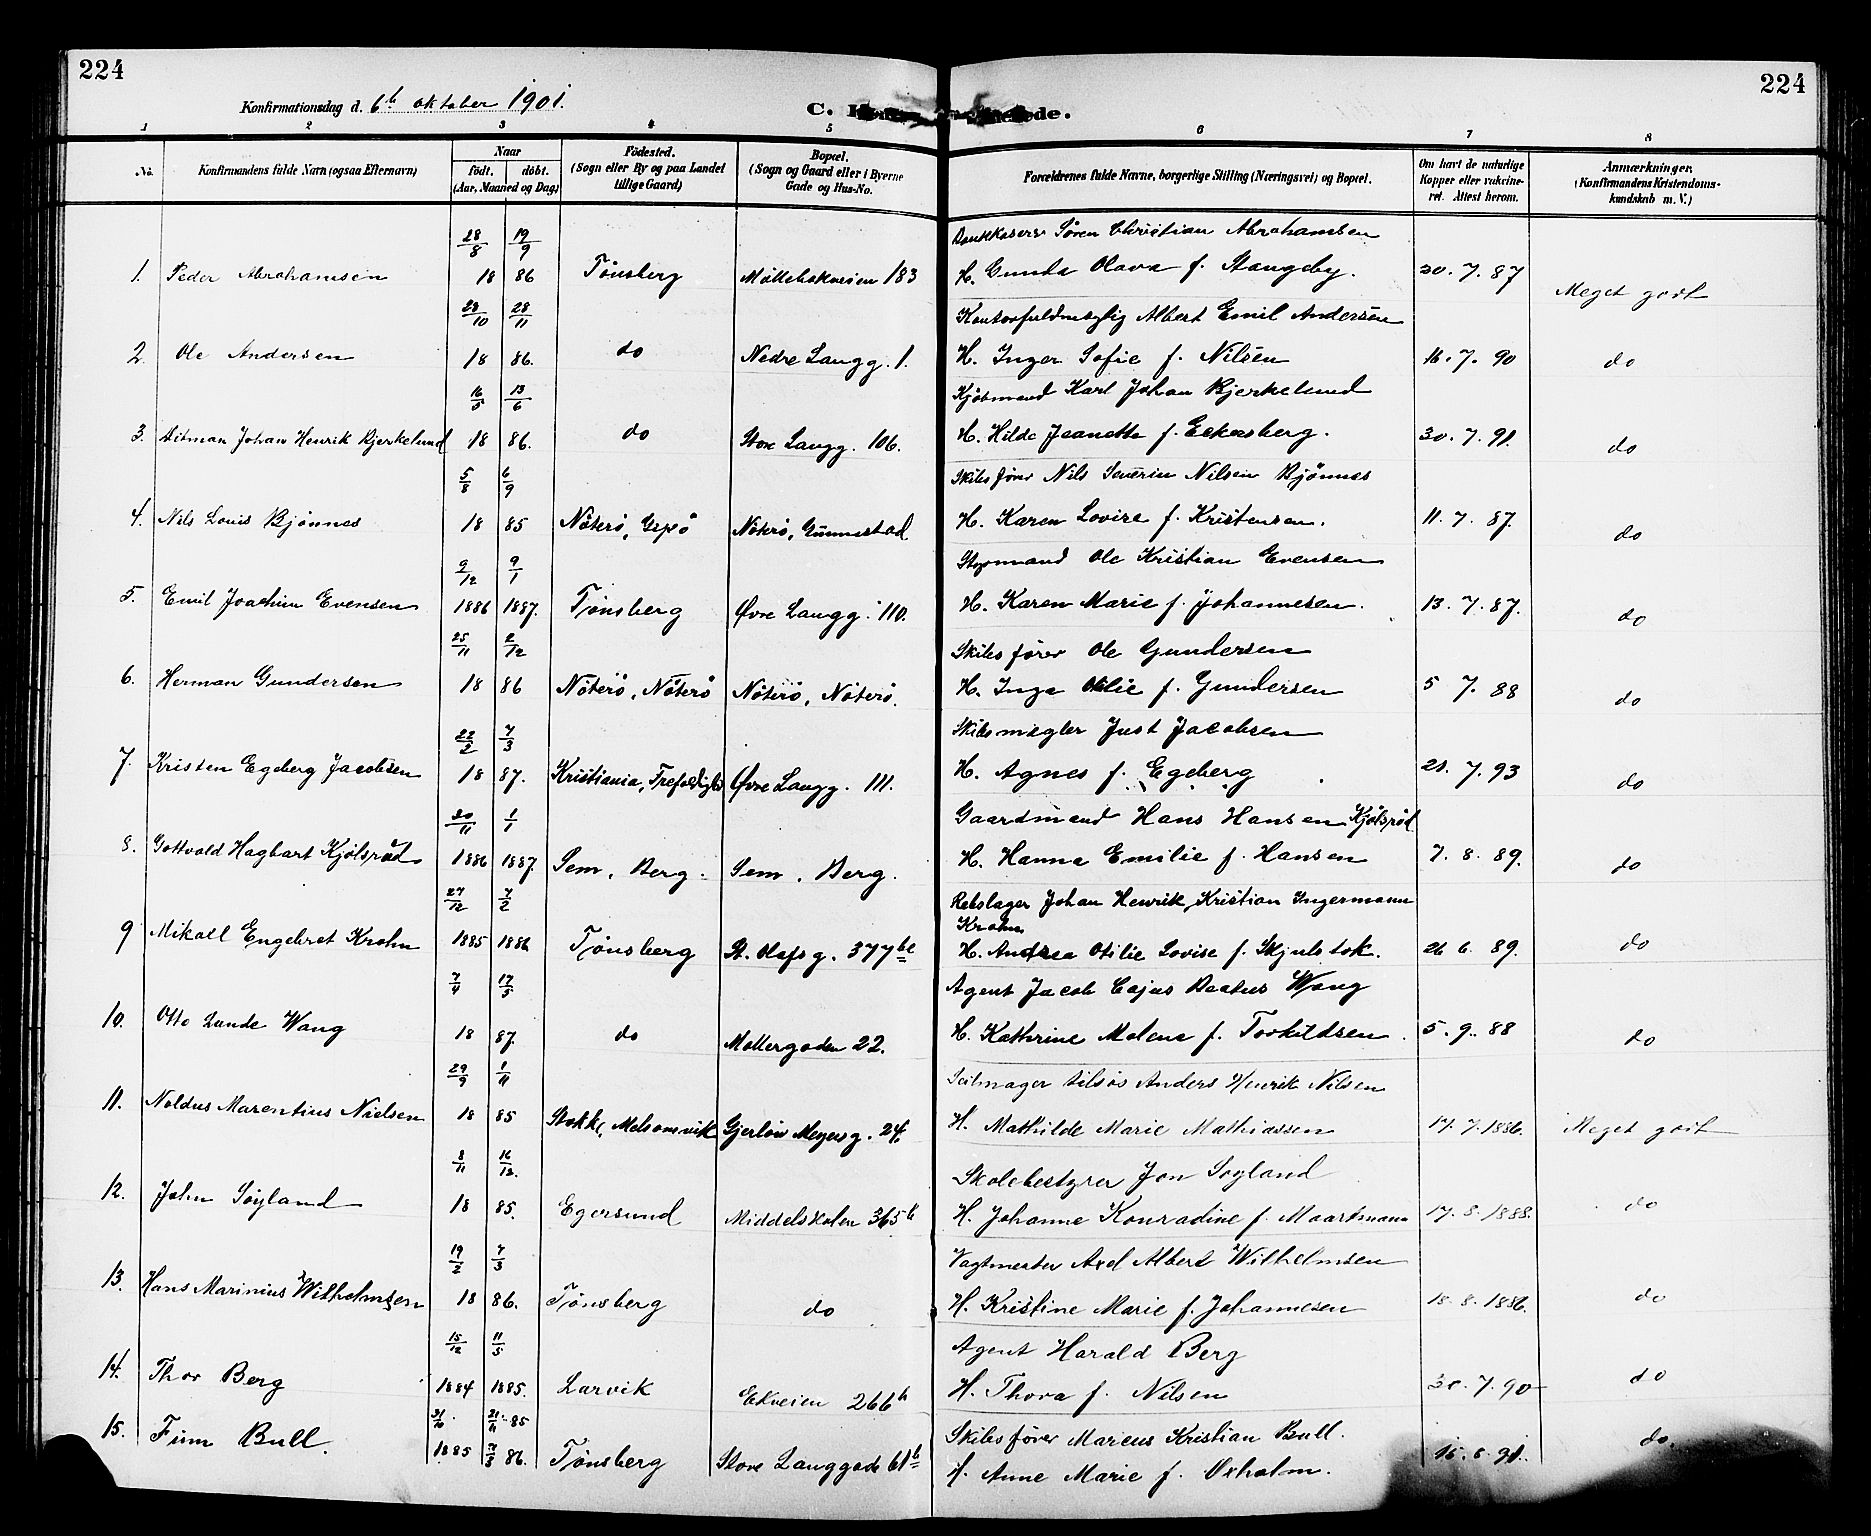 224
224
Konfirmationsdag d. 6te oktober 1901.
C. de.
1 2 3 4 5 6 7 8
No. Konfirmandens fulde Navn (ogsaa Efternavn) Naar født. døbt. (Aar, Maaned og Dag) Fødested. (Sogn eller By og paa Landet tillige Gaard) Bopæl. (Sogn og Gaard eller i Byerne Gade og Hus-No. Forældrenes fulde Navne, borgerlige Stilling (Næringsvei) og Bopæl. Om havt de naturlige Kopper eller vakcineret. Attest herom. Anmærkninger, (Konfirmandens Kristendomskundskab m. V.)
28/8 19/9 Søren Christian Abrahamsen
1. Peder Abrahamsen 18 86 Tønsberg 183 H. Gunda Olava f. Stangeby. 30.7.87 Meget godt
28/10 28/11 Kontorfuldmægtig Albert Emil Andersen
2. Ole Andersen 18 86. do Nedre Langg. 1. H. Inger Sofie f. Nilsen 16.7.90 do
16/5 13/6 Kjøbmand Karl Johan Bjerkelund
3. Ditman Johan Henrik Bjerkelund 18 86. do Store Langg. 106. H. Hilda Jeanette f. Eckersberg. 30.7.91. do
5/8 6/9 Skibsfører Nils Severin Nilsen Bjönnes
4. Nils Louis Bjönnes 18 85 Nöterö, Gipö Nöterö, Gunnestad H. Karen Lovise f. Kristensen. 11.7.87. do
9/12 9/1 Styrmand Ole Kristian Evensen
5. Emil Joachim Evensen 1886 1887. Tønsberg Øvre Langg. 110. H. Karen Marie f. Johannesen. 13.7.87. do
25/11 2/12 Skibsfører Ole Gundersen
6. Herman Gundersen 18 86 Nöterö, Nöterö Nöterö, Nöterö. H. Inga Otilie f. Gundersen 5 7. 88 do
22/2 7/3 Skibsmægler Just Jacobsen
7. Kristen Egeberg Jacobsen 18 87. Kristiania, Trefoldigh. Øvre Langg. 111. H. Agnes f. Egeberg 21.7.93 do
20/11 1/1 Gaardmand Hans Hansen Kjölsröd
8. Gottvald Hagbart Kjölsröd 1886 1887. Sem, Berg. Sem, Berg. H. Hanna Emilie f. Hansen 7.8.89. do
27/12 7/2 Rebslager Johan Henrik Kristian Ingermann Krohn
9 Mikael Engebret Krohn 1885 1886 Tønsberg St. Olafs g. 377 be H. Andrea Otilie Lovise f. Skjulstok. 26 6. 89. do
7/4 17/5 Agent Jacob Cajus Beatus Wang
10. Otto Lunde Wang 18 87. do Møllergaden 22. H. Kathrine Malene f. Torkildsen. 5.9.88 do
29/9 1/11 Seilmager Anders Henrik Nilsen
11. Noldus Marentius Nielsen 18 85 Stokke, Melsomvik Gjerløw Meyers g. 24. H. Mathilde Marie Mathiassen 17.7.1886. Meget godt
8/11 16/12. Skolebestyrer Jon Söyland
12. John Söyland 18 85. Egersund Middelskolen 365 b H. Johanne Konradine f. Maartmann 17.8.1888. do
19/2 7/3 Vagtmester Axel Albert Wilhelmsen
13. Hans Marinius Wilhelmsen 18 86. Tønsberg do H. Kristine Marie f. Johannesen 18.8.1886. do
15/12 11/5 Agent Harald Berg
14. Thor Berg 1884 1885. Larvik Ekveien 266 b H. Thora f. Nilsen 30.7.90 do
31/10 21/11 85 Skibsfører Marcus Kristian Bull.
15. Finn Bull. 1885 7/3 86. Tønsberg Store Langgade 61 b H. Anne Marie f. Oxholm. 15.6.91. do.